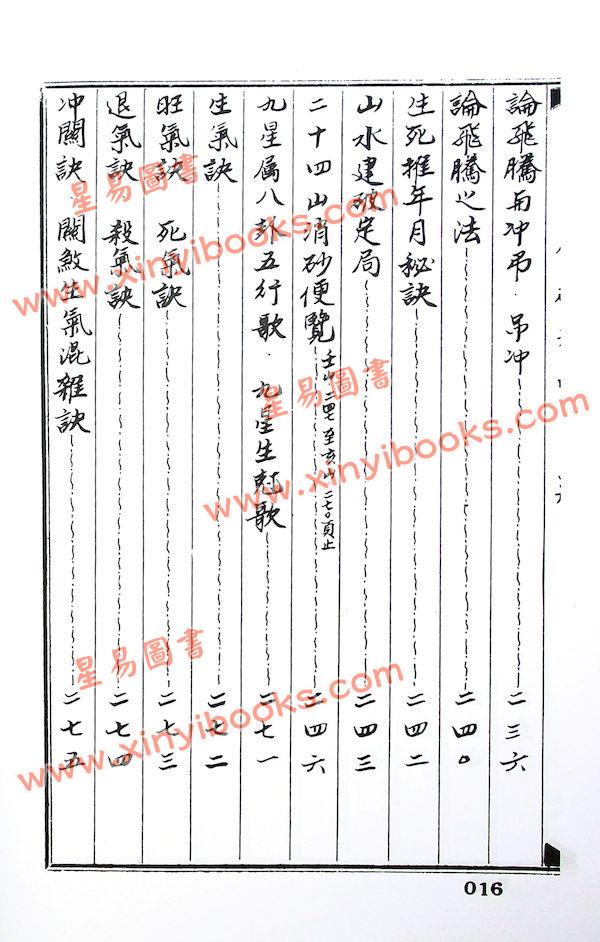 論飛騰而冲弔．吊冲 二三六
論飛騰之法 二四〇
生死推年月秘訣 二四二
山水建破定局 二四三
二十四山消砂便覽 壬山二四七至亥山二七〇頁止 二四六
九星属八卦五行歌．九星生尅歌 二七一
生氣訣 二七二
旺氣訣 死氣訣 二七三
退氣訣 殺氣訣 二七四
冲關訣 關殺生氣混雜訣 二七五
016
星易圖書
www.xinyibooks.com
星易圖書
www.xinyibooks.com
星易圖書
www.xinyibooks.com